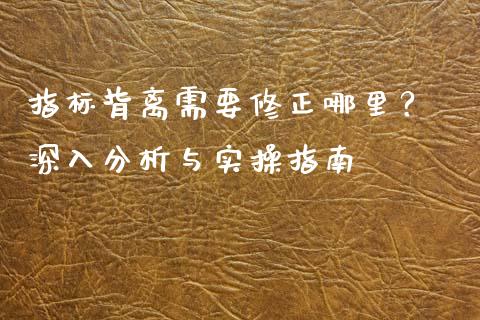 指标背离需要修正哪里？
深入分析与实操指南